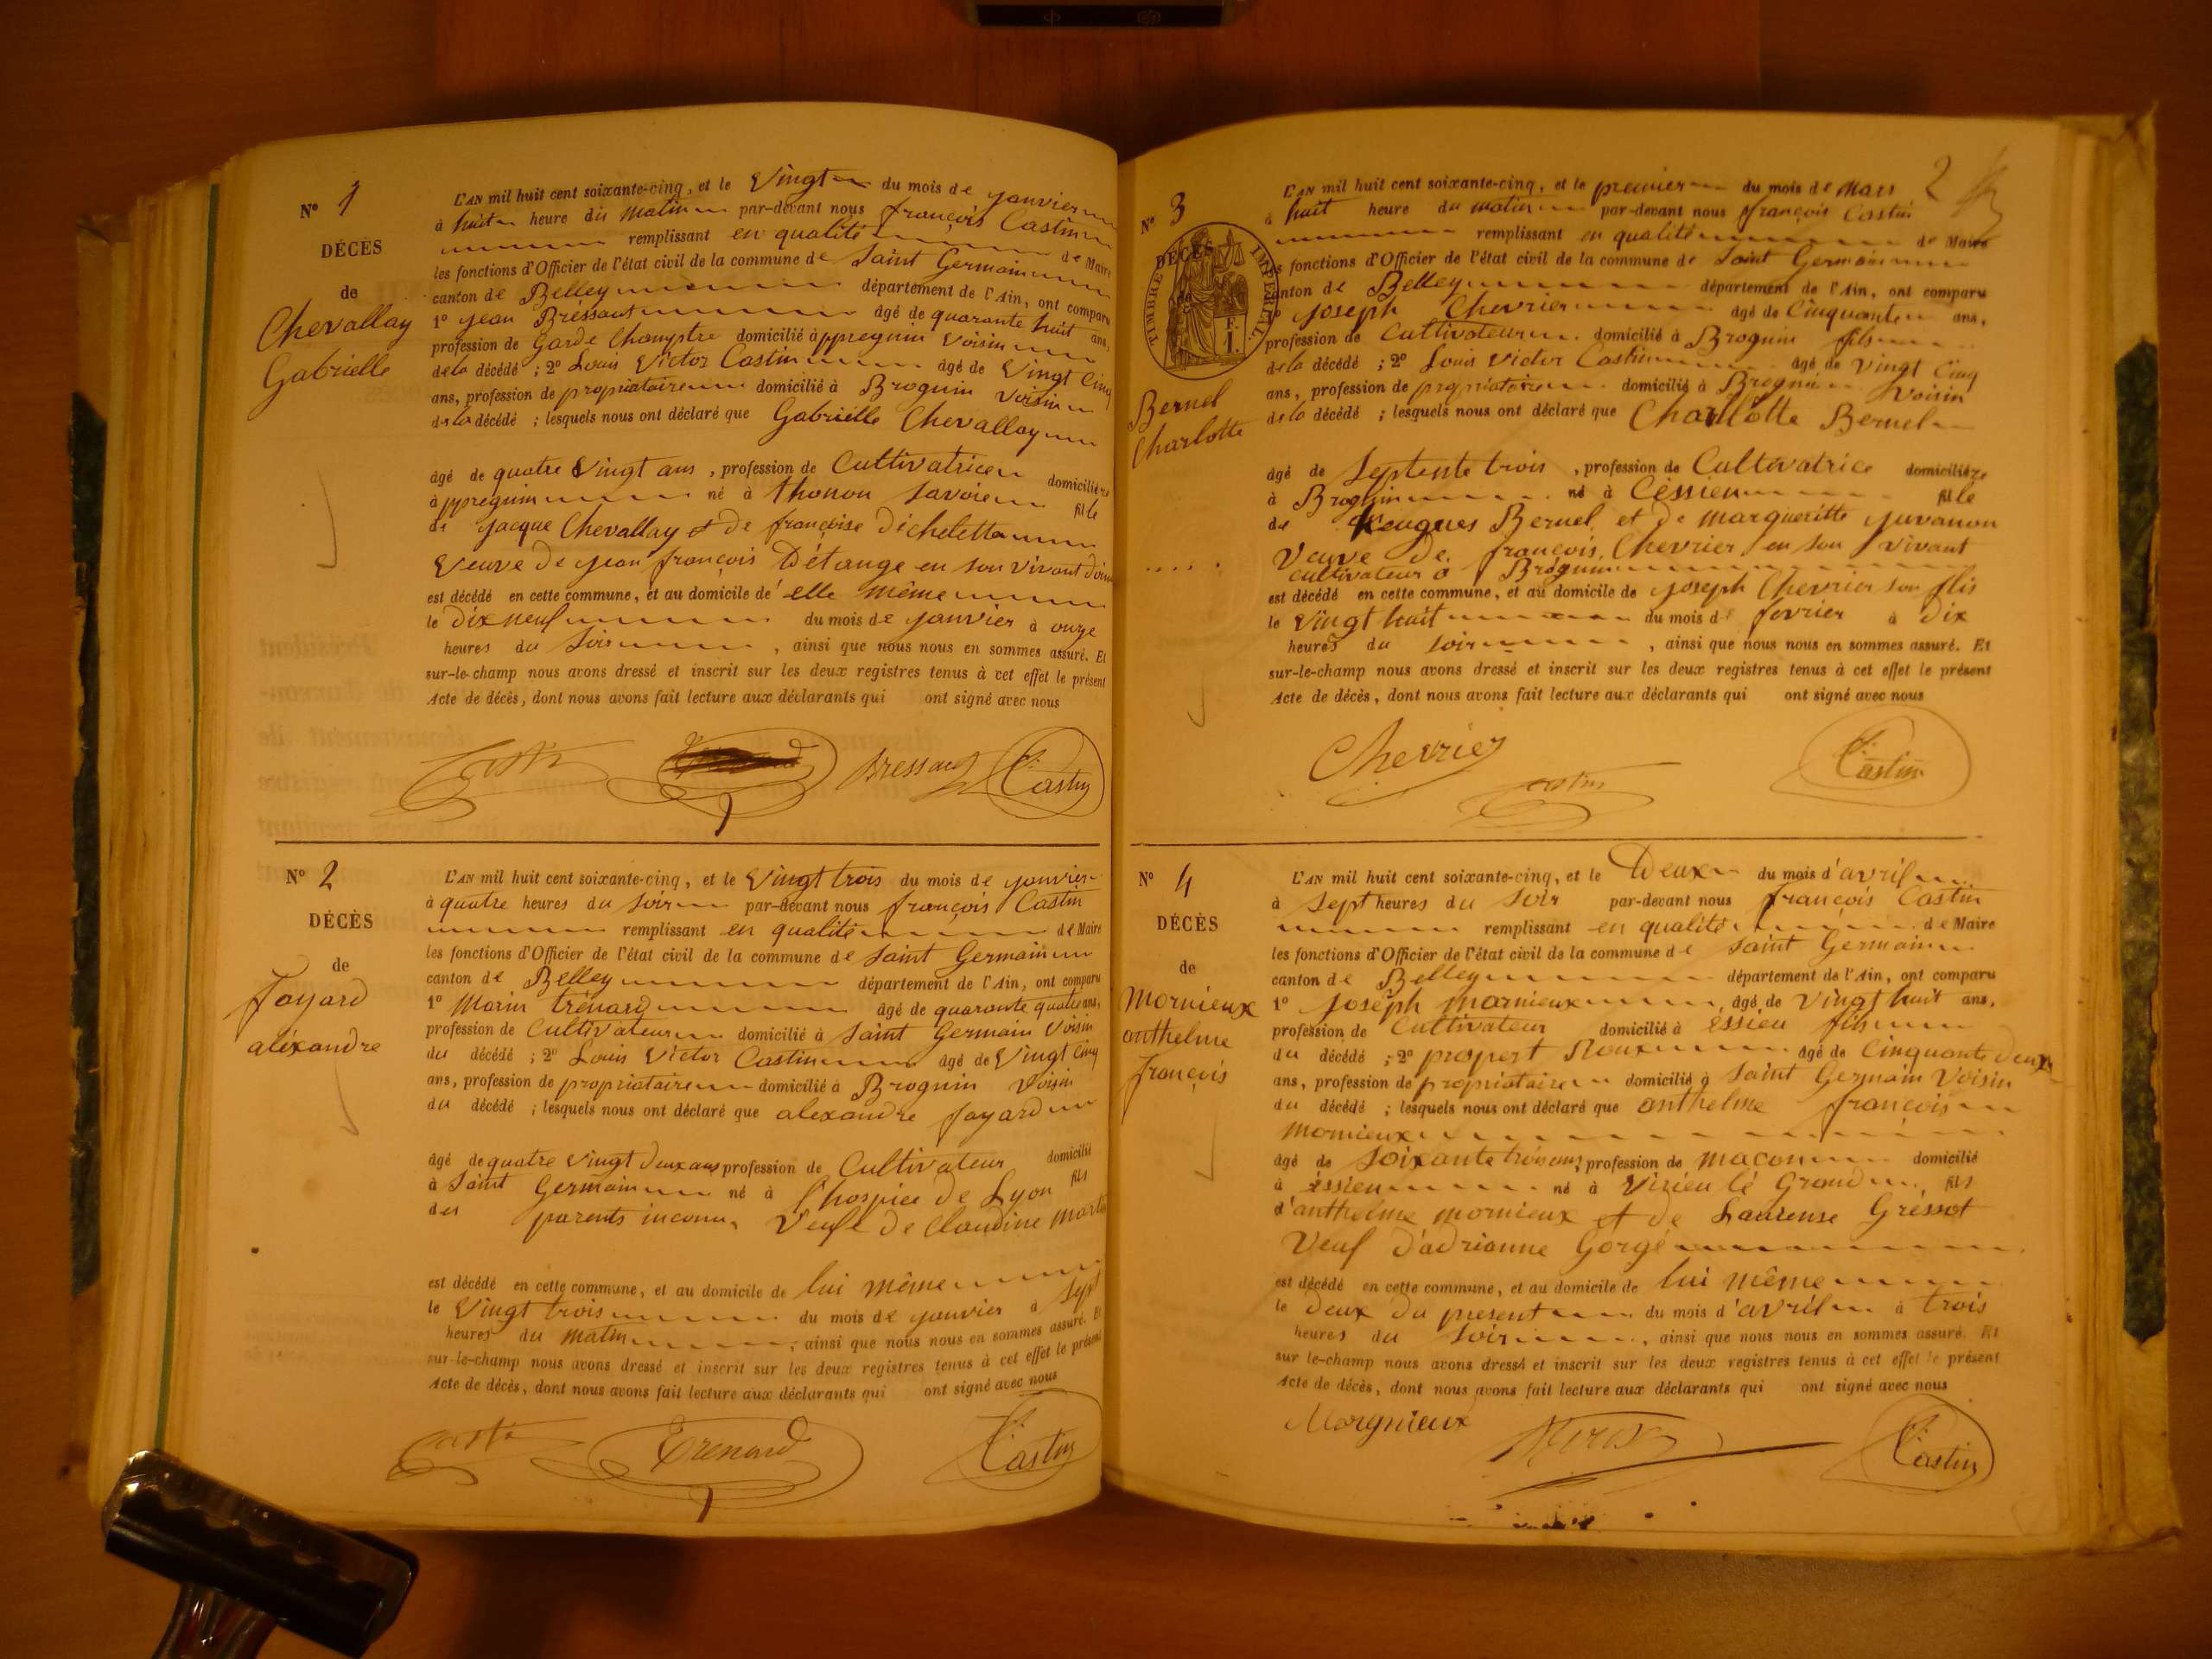 N° 1
DÉCÈS
de
Chevallay
Gabrielle
L'AN mil huit cent soixante-cinq, et le Vingt du mois de janvier
à huit heure du matin par-devant nous françois Castin
remplissant en qualité de Maire
les fonctions d'Officier de l'état civil de la commune de Saint Germain
canton de Belley département de l'Ain, ont comparu
1° jean Bressaut âgé de quarante huit ans,
profession de Garde Champtre domicilié à ppregnin Voisin
de la décédé ; 2° Louis Victor Castin âgé de Vingt Cinq
ans, profession de propriataire domicilié à Brognin Voisin
de la décédé ; lesquels nous ont déclaré que Gabrielle Chevallay
âgé de quatre Vingt ans, profession de Cultivatrice domicilière
à ppregnin né à thonon Savoie fille
de jacque Chevallay & de françoise Dichelette
Veuve de jean françois Détange en son vivant
est décédé en cette commune, et au domicile de elle même
le Dix neuf du mois de janvier à onze
heures du Soir, ainsi que nous nous en sommes assuré. Et
sur-le-champ nous avons dressé et inscrit sur les deux registres tenus à cet effet le présent
Acte de décès, dont nous avons fait lecture aux déclarants qui ont signé avec nous
Castin Bressaut F. Castin
N° 2
DÉCÈS
de
fayard
aléxandre
L'AN mil huit cent soixante-cinq, et le Vingt trois du mois de janvier
à quatre heures du soir par-devant nous françois Castin
remplissant en qualité de Maire
les fonctions d'Officier de l'état civil de la commune de Saint Germain
canton de Belley département de l'Ain, ont comparu
1° Marin trénard âgé de quarante quatre ans,
profession de Cultivateur domicilié à Saint Germain Voisin
du décédé ; 2° Louis Victor Castin âgé de Vingt Cinq
ans, profession de propriataire domicilié à Brognin Voisin
du décédé ; lesquels nous ont déclaré que alexandre fayard
âgé de quatre Vingt Deux ans profession de Cultivateur domicilié
à Saint Germain né à l'hospice de Lyon fils
des parents inconnu, Veuf de Claudine
est décédé en cette commune, et au domicile de lui même
le Vingt trois du mois de janvier à Sept
heures du matin, ainsi que nous nous en sommes assuré. Et
sur-le-champ nous avons dressé et inscrit sur les deux registres tenus à cet effet le présent
Acte de décès, dont nous avons fait lecture aux déclarants qui ont signé avec nous
Castin Trenard F. Castin
2
N° 3
DÉCÈS
de
TIMBRE IMPÉRIAL
Bernel
Charlotte
L'AN mil huit cent soixante-cinq, et le premier du mois de Mars
à huit heure du matin par-devant nous françois Castin
remplissant en qualité de Maire
les fonctions d'Officier de l'état civil de la commune de Saint Germain
canton de Belley département de l'Ain, ont comparu
1° Joseph Chevrier âgé de Cinquante ans,
profession de Cultivateur domicilié à Brognin fils
de la décédé ; 2° Louis Victor Castin âgé de Vingt Cinq
ans, profession de propriataire domicilié à Brognin Voisin
de la décédé ; lesquels nous ont déclaré que Charlotte Bernel
âgé de Septente trois, profession de Cultivatrice domicilière
à Brognin né à Céssieu fille
de Bernel et de margueritte juvanon
Veuve de françois Chevrier en son vivant
cultivateur à Brognin
est décédé en cette commune, et au domicile de joseph Chevrier son flis
le Vingt huit du mois de fevrier à Dix
heures du soir, ainsi que nous nous en sommes assuré. Et
sur-le-champ nous avons dressé et inscrit sur les deux registres tenus à cet effet le présent
Acte de décès, dont nous avons fait lecture aux déclarants qui ont signé avec nous
Chevrier Castin F. Castin
N° 4
DÉCÈS
de
Mornieux
anthelme
françois
L'AN mil huit cent soixante-cinq, et le Deux du mois d'avril
à Sept heures du Soir par-devant nous françois Castin
remplissant en qualité de Maire
les fonctions d'Officier de l'état civil de la commune de Saint Germain
canton de Belley département de l'Ain, ont comparu
1° Joséph mornieux âgé de Vingt huit ans,
profession de Cultivateur domicilié à éssieu fils
du décédé ; 2° propert Roux âgé de Cinquante Deux
ans, profession de propriataire domicilié à Saint Germain Voisin
du décédé ; lesquels nous ont déclaré que anthelme françois
mornieux
âgé de Soixante trois ans, profession de maçon domicilié
à éssieu né à Virieu lé Grand fils
d'anthelme mornieux et de Laurense Gréssot
Veuf d'adrianne Gorgé
est décédé en cette commune, et au domicile de lui même
le Deux du present du mois d'avril à trois
heures du Soir, ainsi que nous nous en sommes assuré. Et
sur le-champ nous avons dressé et inscrit sur les deux registres tenus à cet effet le présent
Acte de décès, dont nous avons fait lecture aux déclarants qui ont signé avec nous
Morgnieux F. Castin